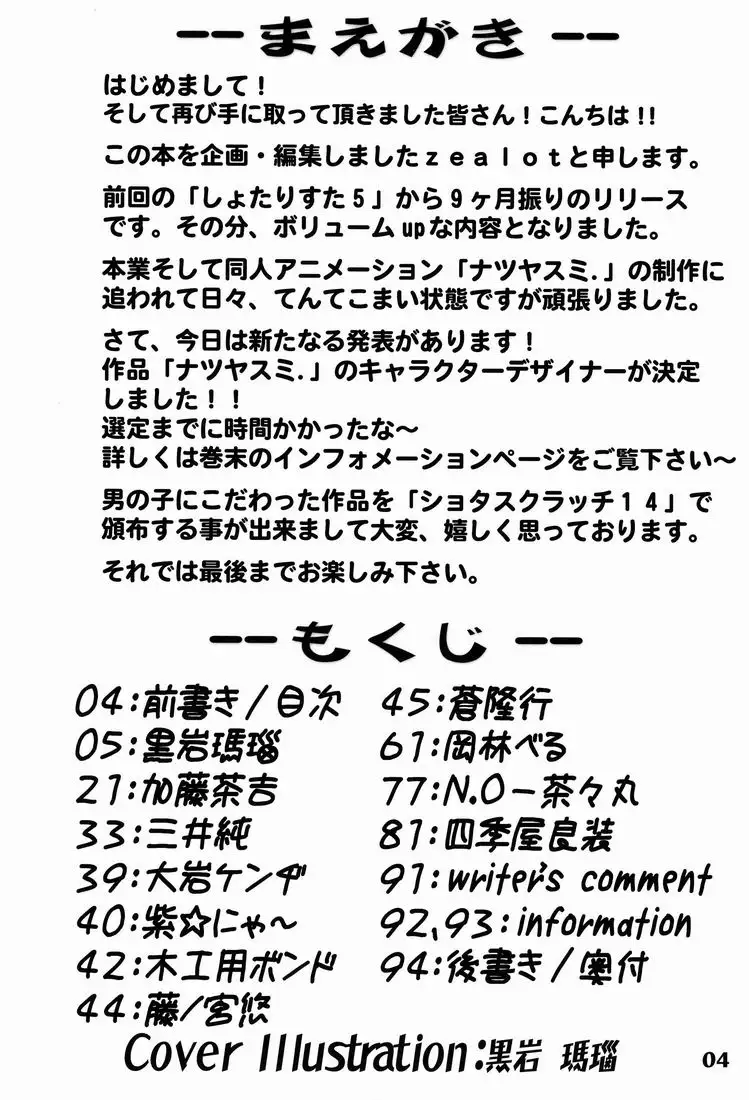 --まえがき--
はじめまして！
そして再び手に取って頂きました皆さん！こんちは!!
この本を企画・編集しましたｚｅａｌｏｔと申します。
前回の「しょたりすた５」から９ヶ月振りのリリース
です。その分、ボリュームupな内容となりました。
本業そして同人アニメーション「ナツヤスミ.」の制作に
追われて日々、てんてこまい状態ですが頑張りました。
さて、今日は新たなる発表があります！
作品「ナツヤスミ.」のキャラクターデザイナーが決定
しました！！
選定までに時間かかったな～
詳しくは巻末のインフォメーションページをご覧下さい～
男の子にこだわった作品を「ショタスクラッチ１４」で
頒布する事が出来まして大変、嬉しく思っております。
それでは最後までお楽しみ下さい。
--もくじ--
04:前書き/目次
05:黒岩瑪瑙
21:加藤茶吉
33:三井純
39:大岩ケンヂ
40:紫☆にゃ～
42:木工用ボンド
44:藤ノ宮悠
45:蒼隆行
61:岡林べる
77:N.O-茶々丸
81:四季屋良装
91:writer's comment
92,93:information
94:後書き/奥付
Cover Illustration:黒岩 瑪瑙
04